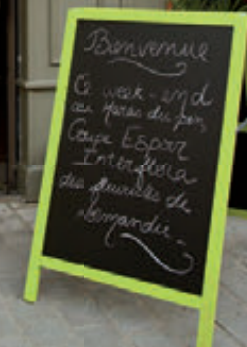 Bienvenue
Ce week-end
au Haras du pin
Coupe Espoir
Interflora
des fleuristes de
Normandie